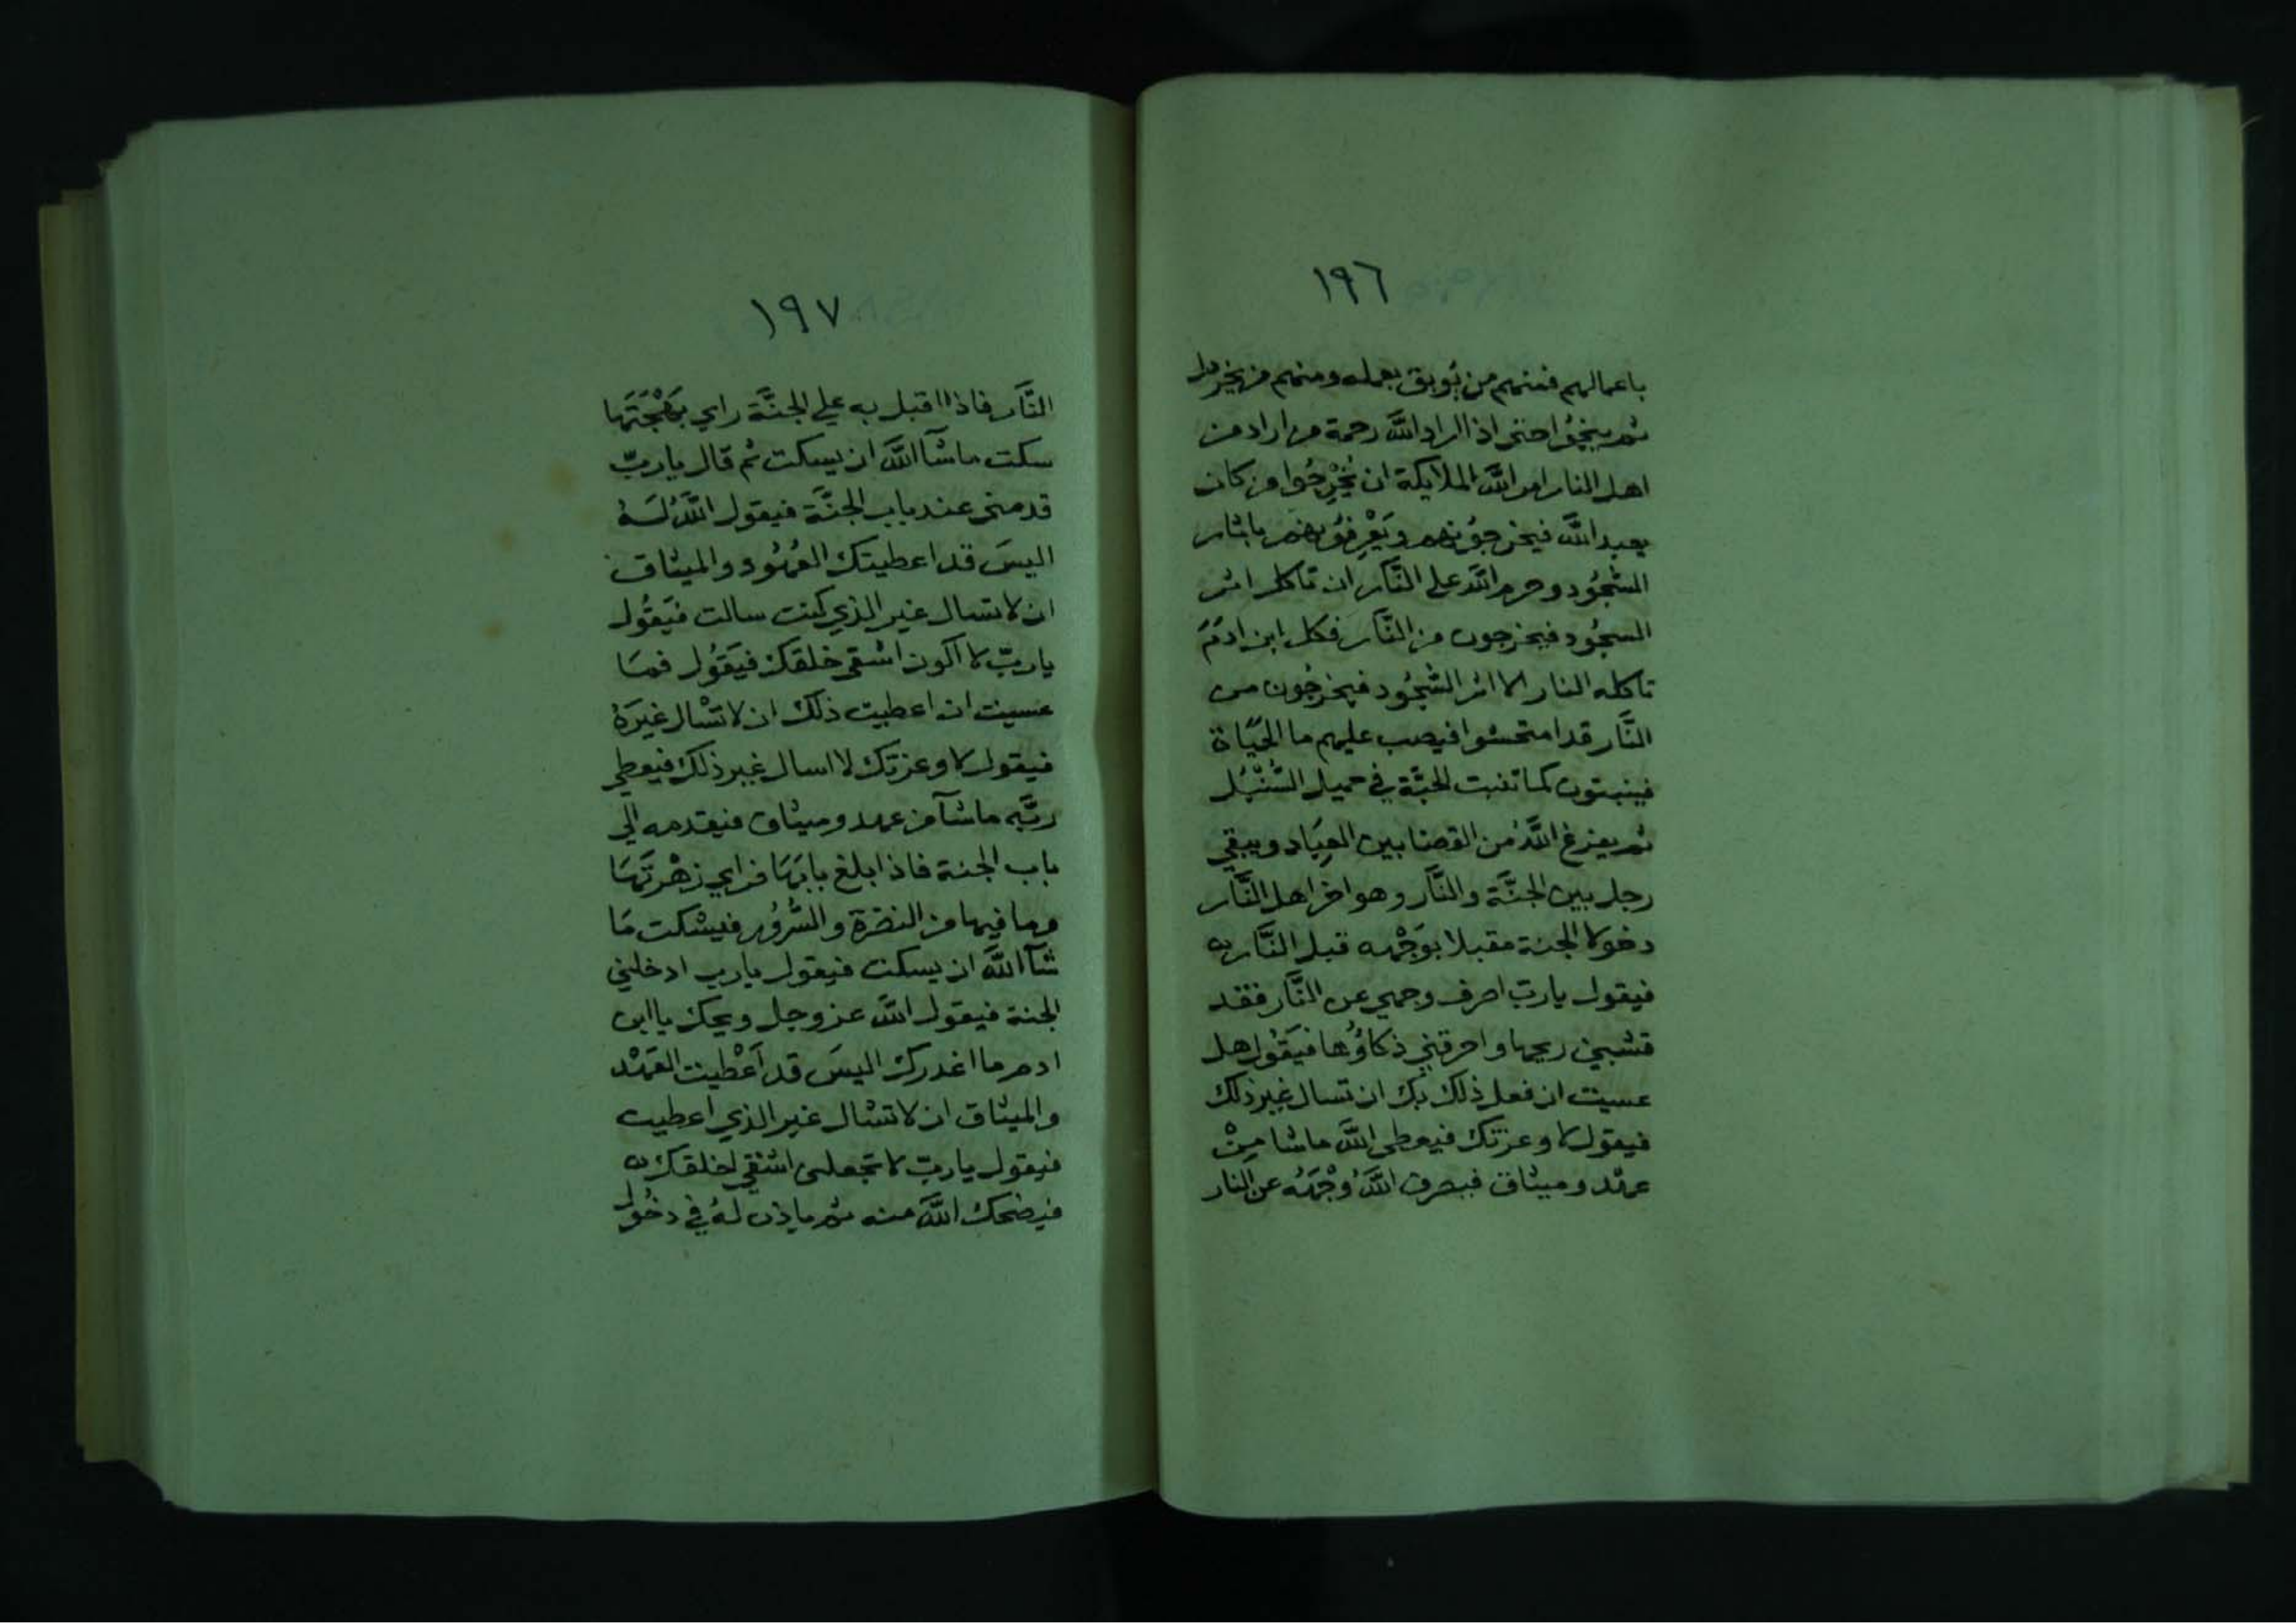 ١٩٦
باعمالهم فمنهم من يُوبق بعمله ومنهم من يخردل
ثم ينجُوا حتى اذا اراد الله رحمة من اراد من
اهل النار امر الله الملايكة ان يُخْرِجُوا من كان
يعبد الله فيخرجُونهم ويَعْرِفُونهم باثار
السُّجُود وحرم الله على النَّار ان تاكل اثر
السجُود فيخرجون من النَّار فكل ابن ادَمَ
تاكله النار الا اثر السُّجُود فيخرجُون من
النَّار قد امتحشوا فيصب عليهم ما الحَيَاة
فينبتون كما تنبت الحبَّة في حميل السُّنْبُل
ثم يفرغ اللَّهُ من القضا بين العِبَاد ويبقي
رجل بين الجنَّة والنَّار وهو اخر اهل النَّار
دخولا الجنة مقبلا بوَجْهه قبل النَّار
فيقول يا ربّ اصرف وجهي عن النَّار فقد
قشبني ريحها واحرقني ذكاؤُها فيَقُول هل
عسيت ان فعل ذلك بك ان تسال غير ذلك
فيقول لا وعزتك فيعطى اللَّه ماشا مِنْ
عهْد وميثاق فيصرف اللَّهُ وَجْهَهُ عن النار
١٩٧
النَّار فاذا اقبل به علي الجنَّة راي بَهْجَتَهَا
سكت ماشآ اللَّه ان يسكت ثم قال يا ربّ
قدمنى عند باب الجنَّة فيقول اللَّهُ لَهُ
اليسَ قد اعطيتك العُهُود والميثاق
ان لا تسال غير الذي كنت سالت فيَقُول
يا ربّ لا اكون اشقى خلقك فيَقُول فمَا
عسيت ان اعطيت ذلك ان لا تسْال غيرَهُ
فيقول لا وعزتك لا اسال غير ذلك فيعطي
ربَّه ماشآ من عهد وميثاق فيقدمه الي
باب الجنة فاذا بلغ بابَهَا فراي زهْرتَهَا
وما فيها من النضرة والسُّرُور فيسْكت مَا
شآ اللَّه ان يسكت فيقول يا رب ادخلني
الجنة فيقول اللَّه عز وجل ويحك يا ابن
ادم ما اغدرك اليسَ قد اَعْطيت العَهْد
والميثاق ان لا تسْال غير الذي اعطيت
فيقول يا ربّ لا تجعلنى اشقي خلقك
فيضحك اللَّه منه ثم ياذن لهُ في دخُول